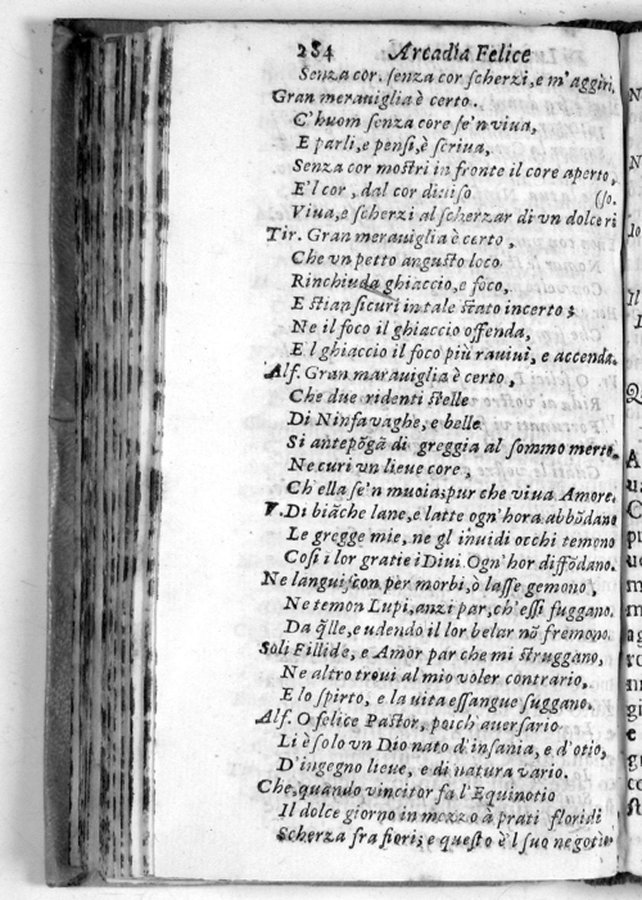 284 Arcadia Felice
Senza cor. ſenza cor ſcherzi, e m'aggiri,
Gran merauiglia è certo.
C'huom ſenza core ſe'n viua,
E parli, e penſi, è ſcriua,
Senza cor moſtri in fronte il core aperto,
E'l cor, dal cor diuiſo (ſo.
Viua, e ſcherzi al ſcherzar di vn dolce ri
Tir. Gran merauiglia è certo,
Che vn petto anguſto loco
Rinchiuda ghiaccio, e foco,
E ſtian ſicuri in tale ſtato incerto;
Ne il foco il ghiaccio offenda,
E'l ghiaccio il foco più rauiui, e accenda.
Alf. Gran marauiglia è certo,
Che due ridenti ſtelle
Di Ninfa vaghe, e belle
Si antepõgã di greggia al ſommo merto.
Ne curi vn lieue core,
Ch'ella ſe'n muoia; pur che viua Amore.
V. Di biãche lane, e latte ogn'hora abbõdano
Le gregge mie, ne gl inuidi occhi temono
Coſi i lor gratie i Diui Ogn'hor diffõdano.
Ne languiſcon per morbi, ò laſſe gemono,
Ne temon Lupi, anzi par, ch'eſſi fuggano.
Da q̃lle, e udendo il lor belar nõ fremono.
Soli Fillide, e Amor par che mi ſtruggano,
Ne altro troui al mio voler contrario,
E lo ſpirto, e la uita eſſangue ſuggano.
Alf. O felice Paſtor, poich' auerſario
Li è ſolo vn Dio nato d'inſania, e d'otio,
D'ingegno lieue, e di natura vario.
Che, quando vincitor fa l'Equinotio
Il dolce giorno in mezzo à prati floridi
Scherza fra fiori; e queſto è'l ſuo negotio